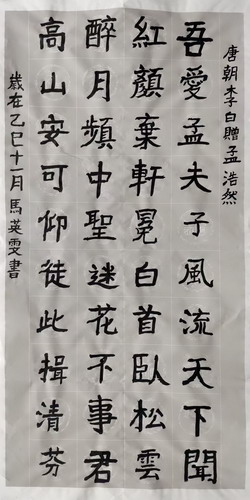 唐朝李白贈孟浩然
吾愛孟夫子風流天下聞
紅顏棄軒冕白首臥松雲
醉月頻中聖迷花不事君
高山安可仰徒此揖清芬
歲在乙巳十一月馬英雯書